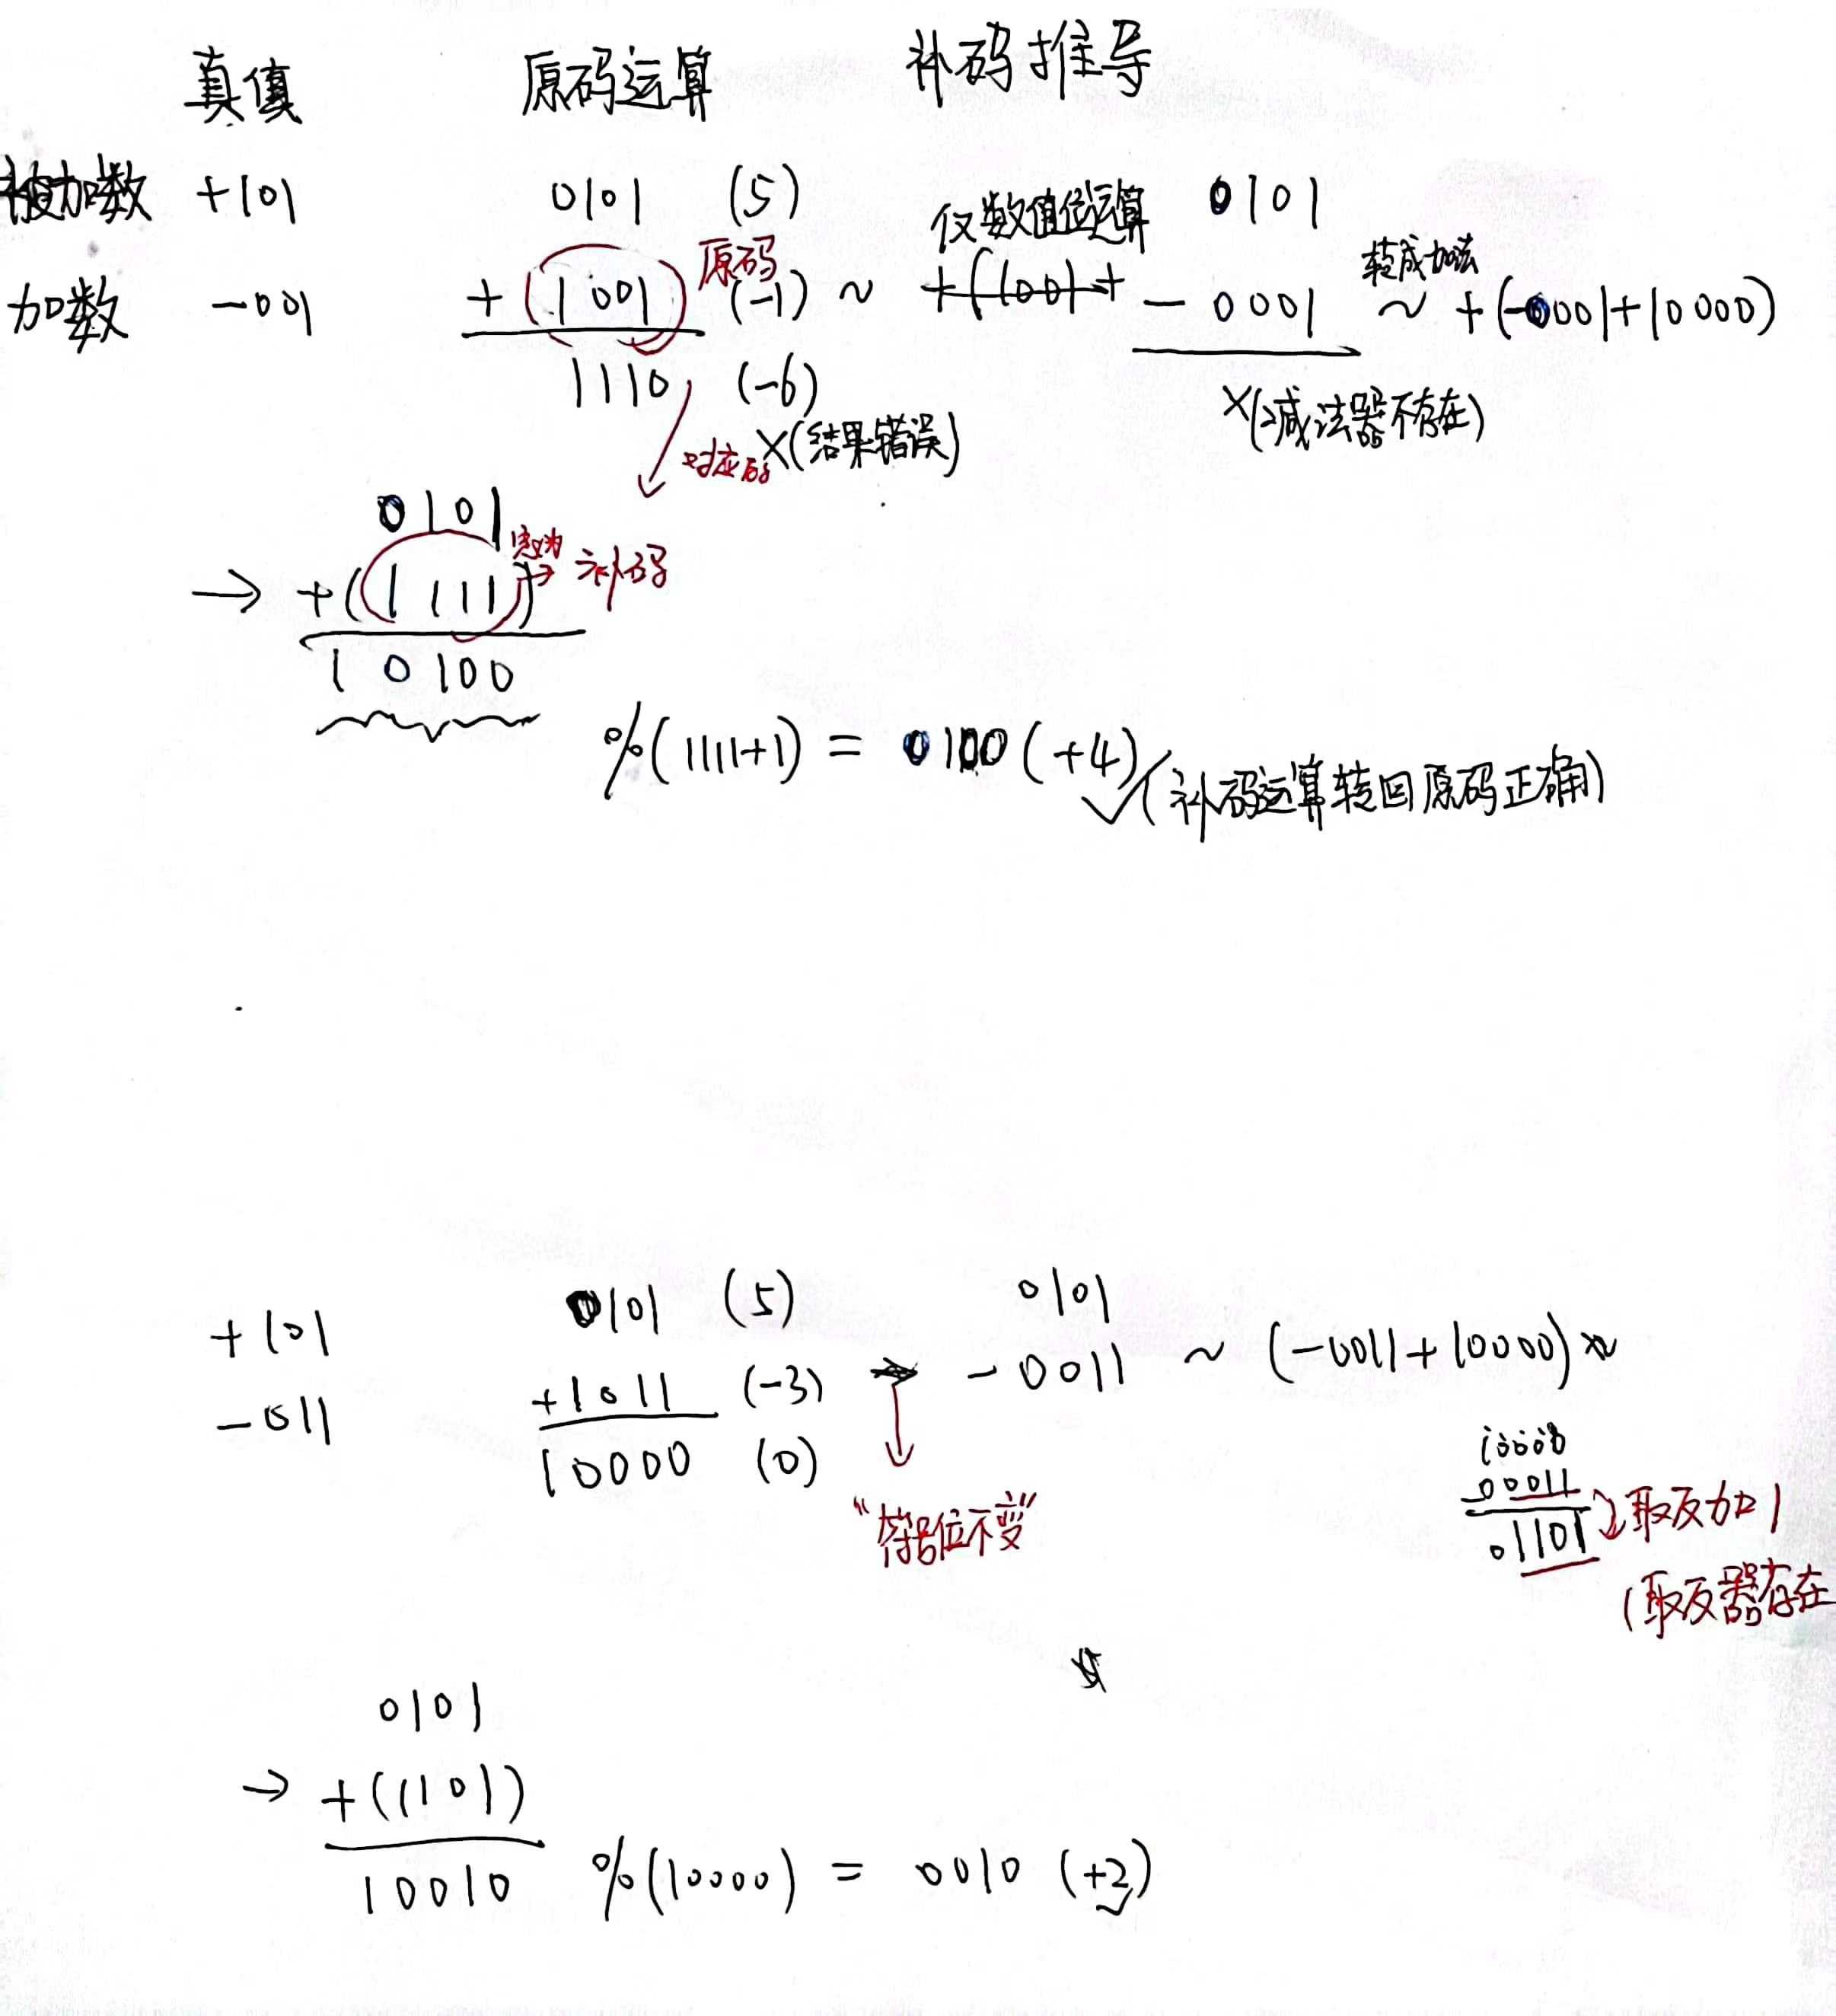 真值 原码运算 补码推导
被加数 +101 0101 (5) 仅数值位运算 0101
原码 转成加法
加数 -001 + (1001) (-1) ~ +(1001+ - 0001 ~ +(-0001+10000)
1110 (-6) X(减法器不存在)
对应的 X(结果错误)
0101
→ +(1111) 定义为→ 补码
10100
%(1111+1) = 0100 (+4) ✓(补码运算转回原码正确)
+101 0101 (5) 0101
-011 +1011 (-3) → -0011 ~ (-0011+10000)
10000 (0)
"符号位不变"
10000
-00011
01101 取反加1
(取反器存在
0101
→ +(1101)
10010 %(10000) = 0010 (+2) ✓